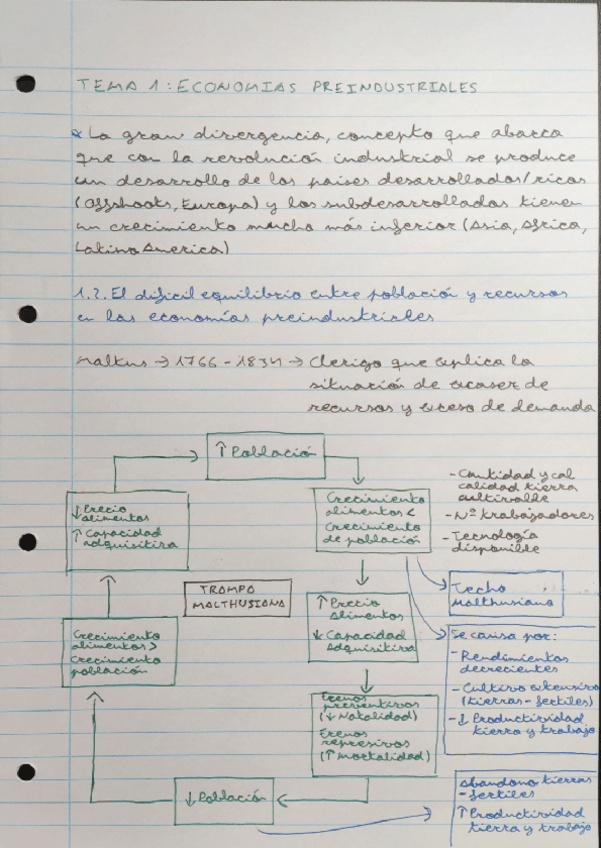 TEMA 1: ECONOMIAS PREINDUSTRIALES
* La gran divergencia, concepto que abarca
que con la revolución industrial se produce
un desarrollo de los países desarrollados/ricos
(Offshoots, Europa) y los subdesarrollados tienen
un crecimiento mucho más inferior (Asia, Africa,
Latino America)
1.2. El dificil equilibrio entre población y recursos
en las economías preindustriales
Maltus → 1766 - 1834 → Clerigo que explica la
situación de escasez de
recursos y exceso de demanda
↑ Población
Crecimiento
alimentos <
Crecimiento
de población
- Cantidad y cal
calidad tierra
cultivable
- Nº trabajadores
- Tecnología
disponible
Techo
Malthusiano
Se causa por:
- Rendimientos
decrecientes
- Cultivo extensivo
(tierras - fertiles)
- ↓ Productividad
tierra y trabajo
↑ Precio
Alimentos
↓ Capacidad
Adquisitiva
Frenos
preventivos
(↓ Natalidad)
Frenos
represivos
(↑ Mortalidad)
↓ Población
Abandono tierras
- fertiles
↑ Productividad
tierra y trabajo
Crecimiento
alimentos >
Crecimiento
población
↓ Precio
alimentos
↑ Capacidad
adquisitiva
TRAMPA
MALTHUSIANA